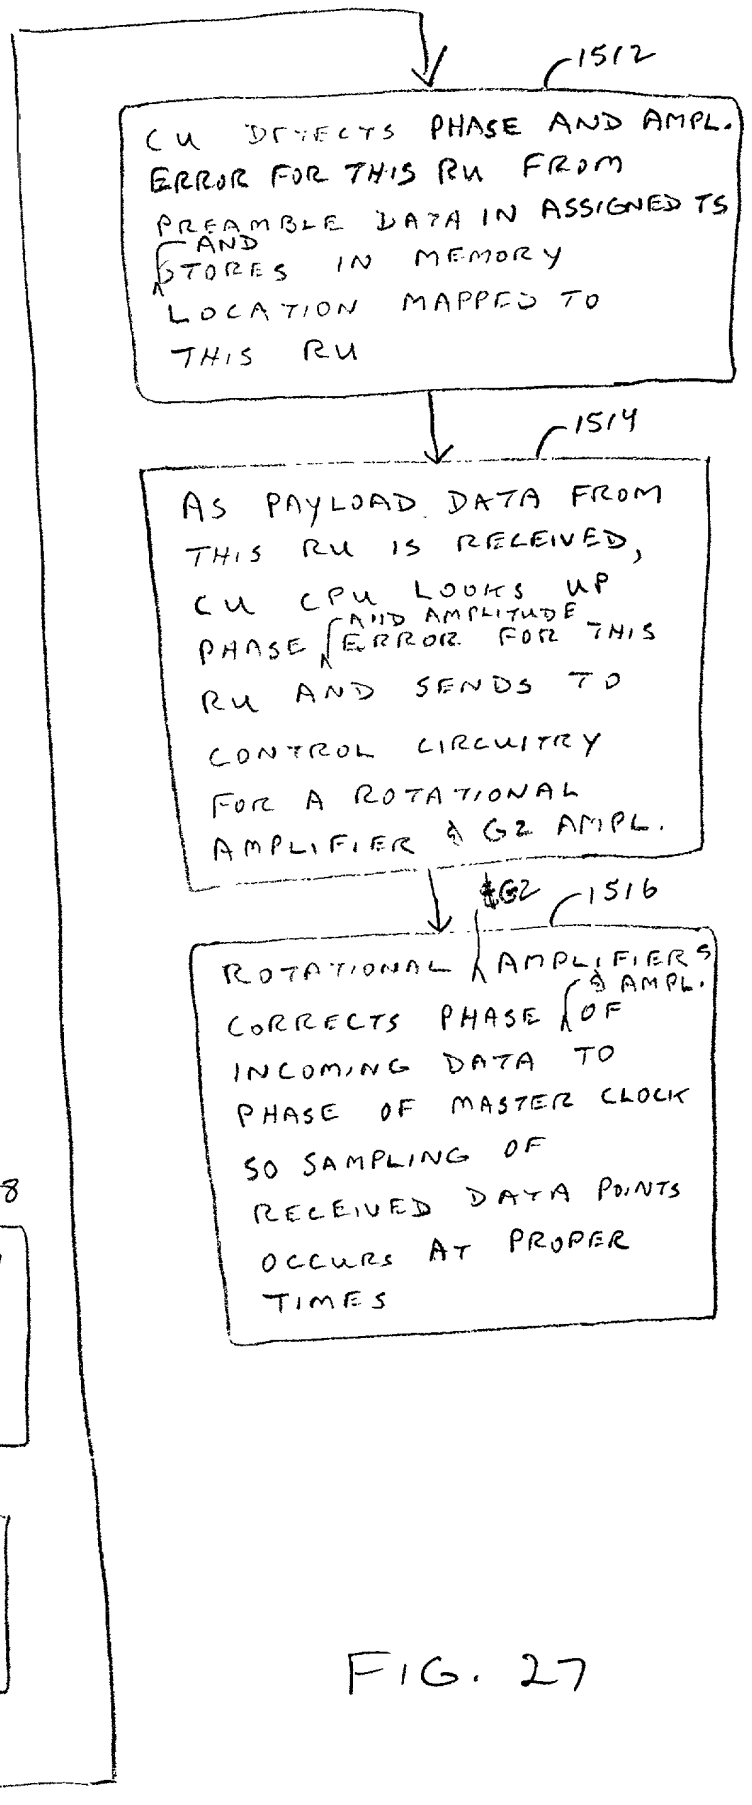 1512
CU DETECTS PHASE AND AMPL.
ERROR FOR THIS RU FROM
PREAMBLE DATA IN ASSIGNED TS
AND
STORES IN MEMORY
LOCATION MAPPED TO
THIS RU
1514
AS PAYLOAD DATA FROM
THIS RU IS RECEIVED,
CU CPU LOOKS UP
AND AMPLITUDE
PHASE ERROR FOR THIS
RU AND SENDS TO
CONTROL CIRCUITRY
FOR A ROTATIONAL
AMPLIFIER & G2 AMPL.
&G2
1516
ROTATIONAL AMPLIFIERS
& AMPL.
CORRECTS PHASE OF
INCOMING DATA TO
PHASE OF MASTER CLOCK
SO SAMPLING OF
RECEIVED DATA POINTS
OCCURS AT PROPER
TIMES
8
FIG. 27